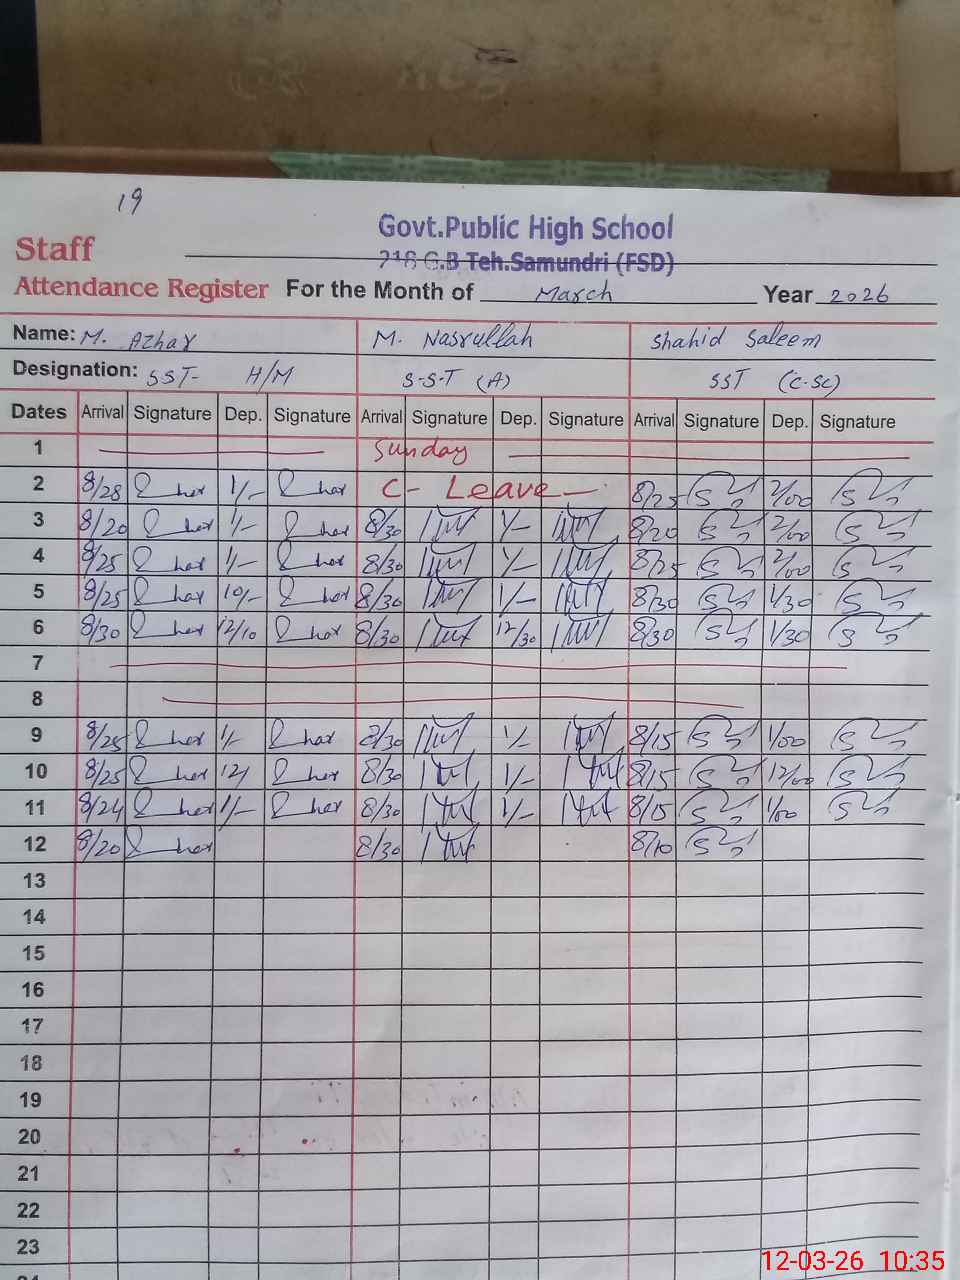 19
Govt.Public High School
Staff
218 G.B Teh.Samundri (FSD)
Attendance Register For the Month of March Year 2026
Name: M. Azhar M. Nasrullah Shahid Saleem
Designation: SST- H/M S-S-T (A) SST (C-SC)
Dates Arrival Signature Dep. Signature Arrival Signature Dep. Signature Arrival Signature Dep. Signature
1 Sunday
2 8/28 1/- C- Leave 8/25 2/00
3 8/20 1/- 8/30 1/- 8/20 2/00
4 8/25 1/- 8/30 1/- 8/25 2/00
5 8/25 10/- 8/30 1/- 8/30 1/30
6 8/30 12/10 8/30 12/30 8/30 1/30
7
8
9 8/25 1/- 8/30 1/- 8/15 1/00
10 8/25 12/ 8/30 1/- 8/15 12/00
11 8/24 1/- 8/30 1/- 8/15 1/00
12 8/20 8/30 8/10
13
14
15
16
17
18
19
20
21
22
23
12-03-26 10:35